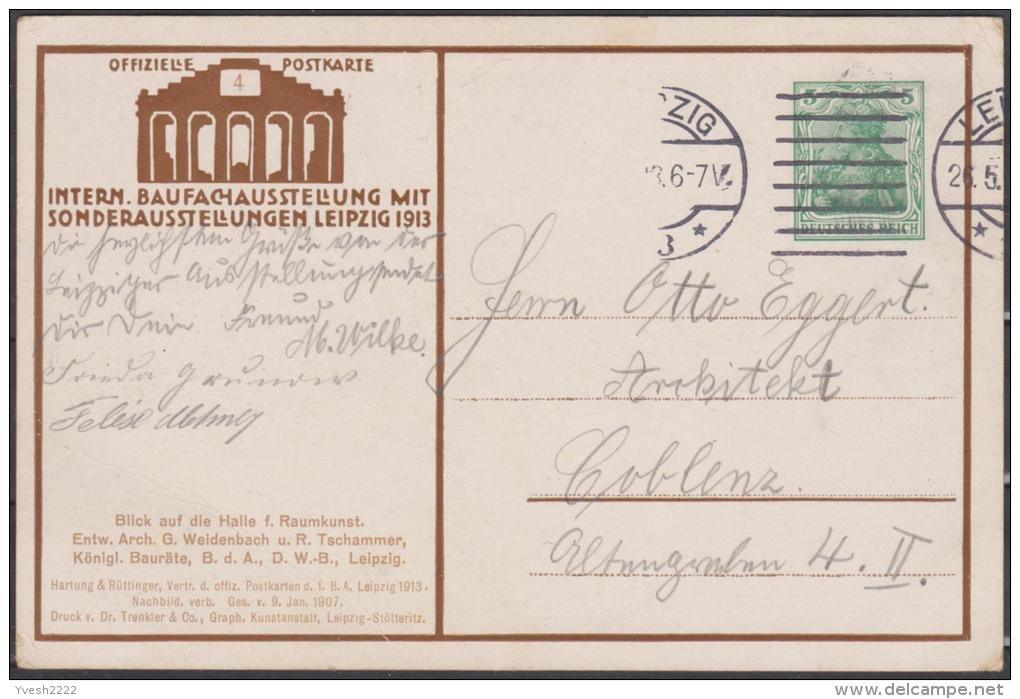 OFFIZIELLE POSTKARTE
4
INTERN. BAUFACHAUSSTELLUNG MIT
SONDERAUSSTELLUNGEN LEIPZIG 1913
die herzlichsten Grüße von der
Leipziger Ausstellung sendet
dir Dein Freund
M. Wilke.
Frieda Grunow
Blick auf die Halle f. Raumkunst.
Entw. Arch. G. Weidenbach u. R. Tschammer,
Königl. Bauräte, B. d. A., D. W.-B., Leipzig.
Hartung & Rüttinger, Vertr. d. offiz. Postkarten d. I. B. A. Leipzig 1913.
Nachbild. verb. Ges. v. 9. Jan. 1907.
Druck v. Dr. Trenkler & Co., Graph. Kunstanstalt, Leipzig-Stötteritz.
ZIG
3.6-7V.
3 *
5 5
DEUTSCHES REICH
LEI
26.5.
*
Herrn Otto Eggert.
Architekt
Coblenz.
Altengraben 4. II.
Yvesh2222
delcampe.net